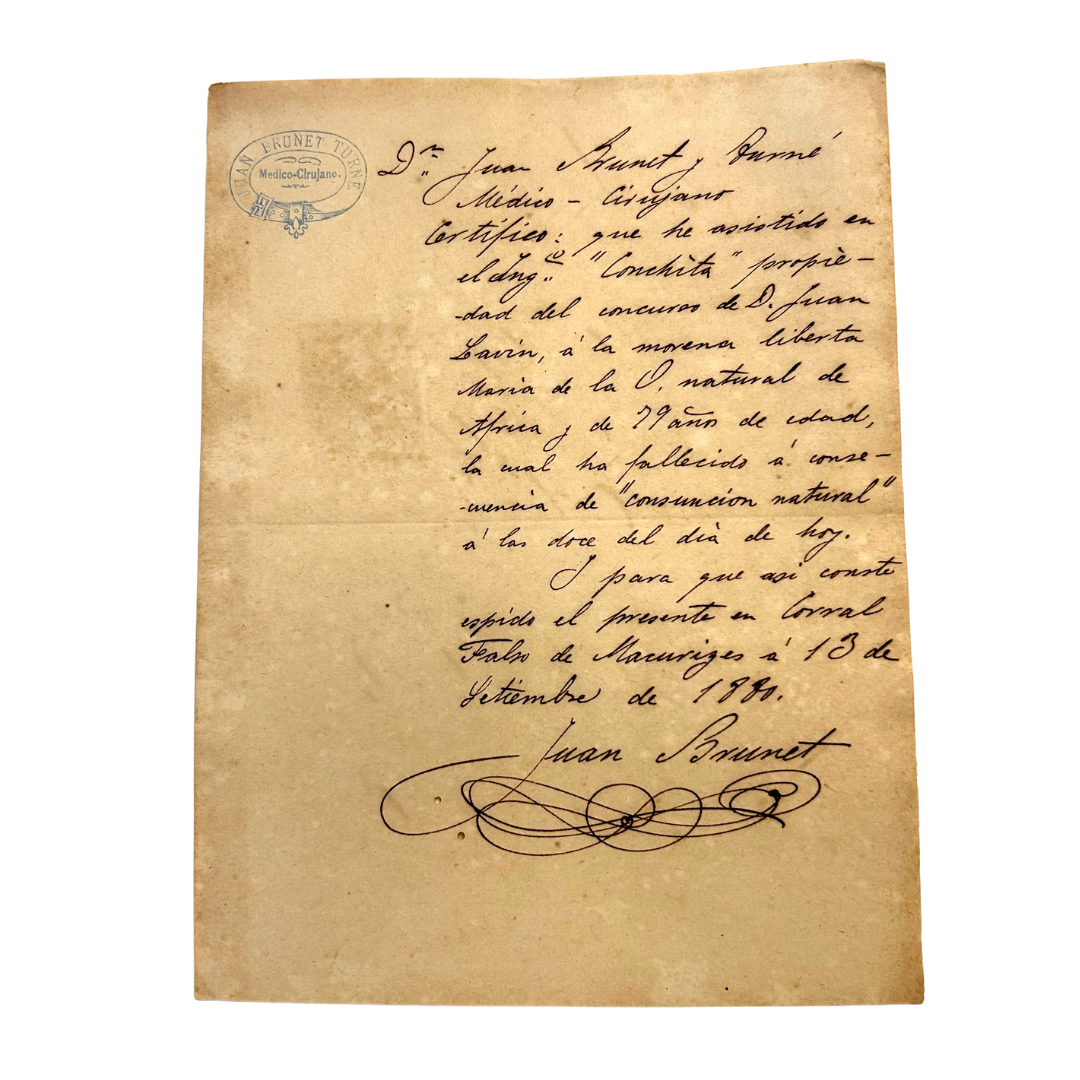 JUAN BRUNET TURNÉ
Medico-Cirujano.
Dn. Juan Brunet y Turné
Médico - Cirujano
Certifico: que he asistido en
el Ingo. "Conchita" propie-
-dad del concurso de D. Juan
Lavin, á la morena liberta
Maria de la O. natural de
Africa y de 79 años de edad,
la cual ha fallecido á conse-
-cuencia de "consunción natural"
á las doce del dia de hoy.
Y para que asi conste
espido el presente en Corral
Falso de Macuriges á 13 de
Setiembre de 1880.
Juan Brunet